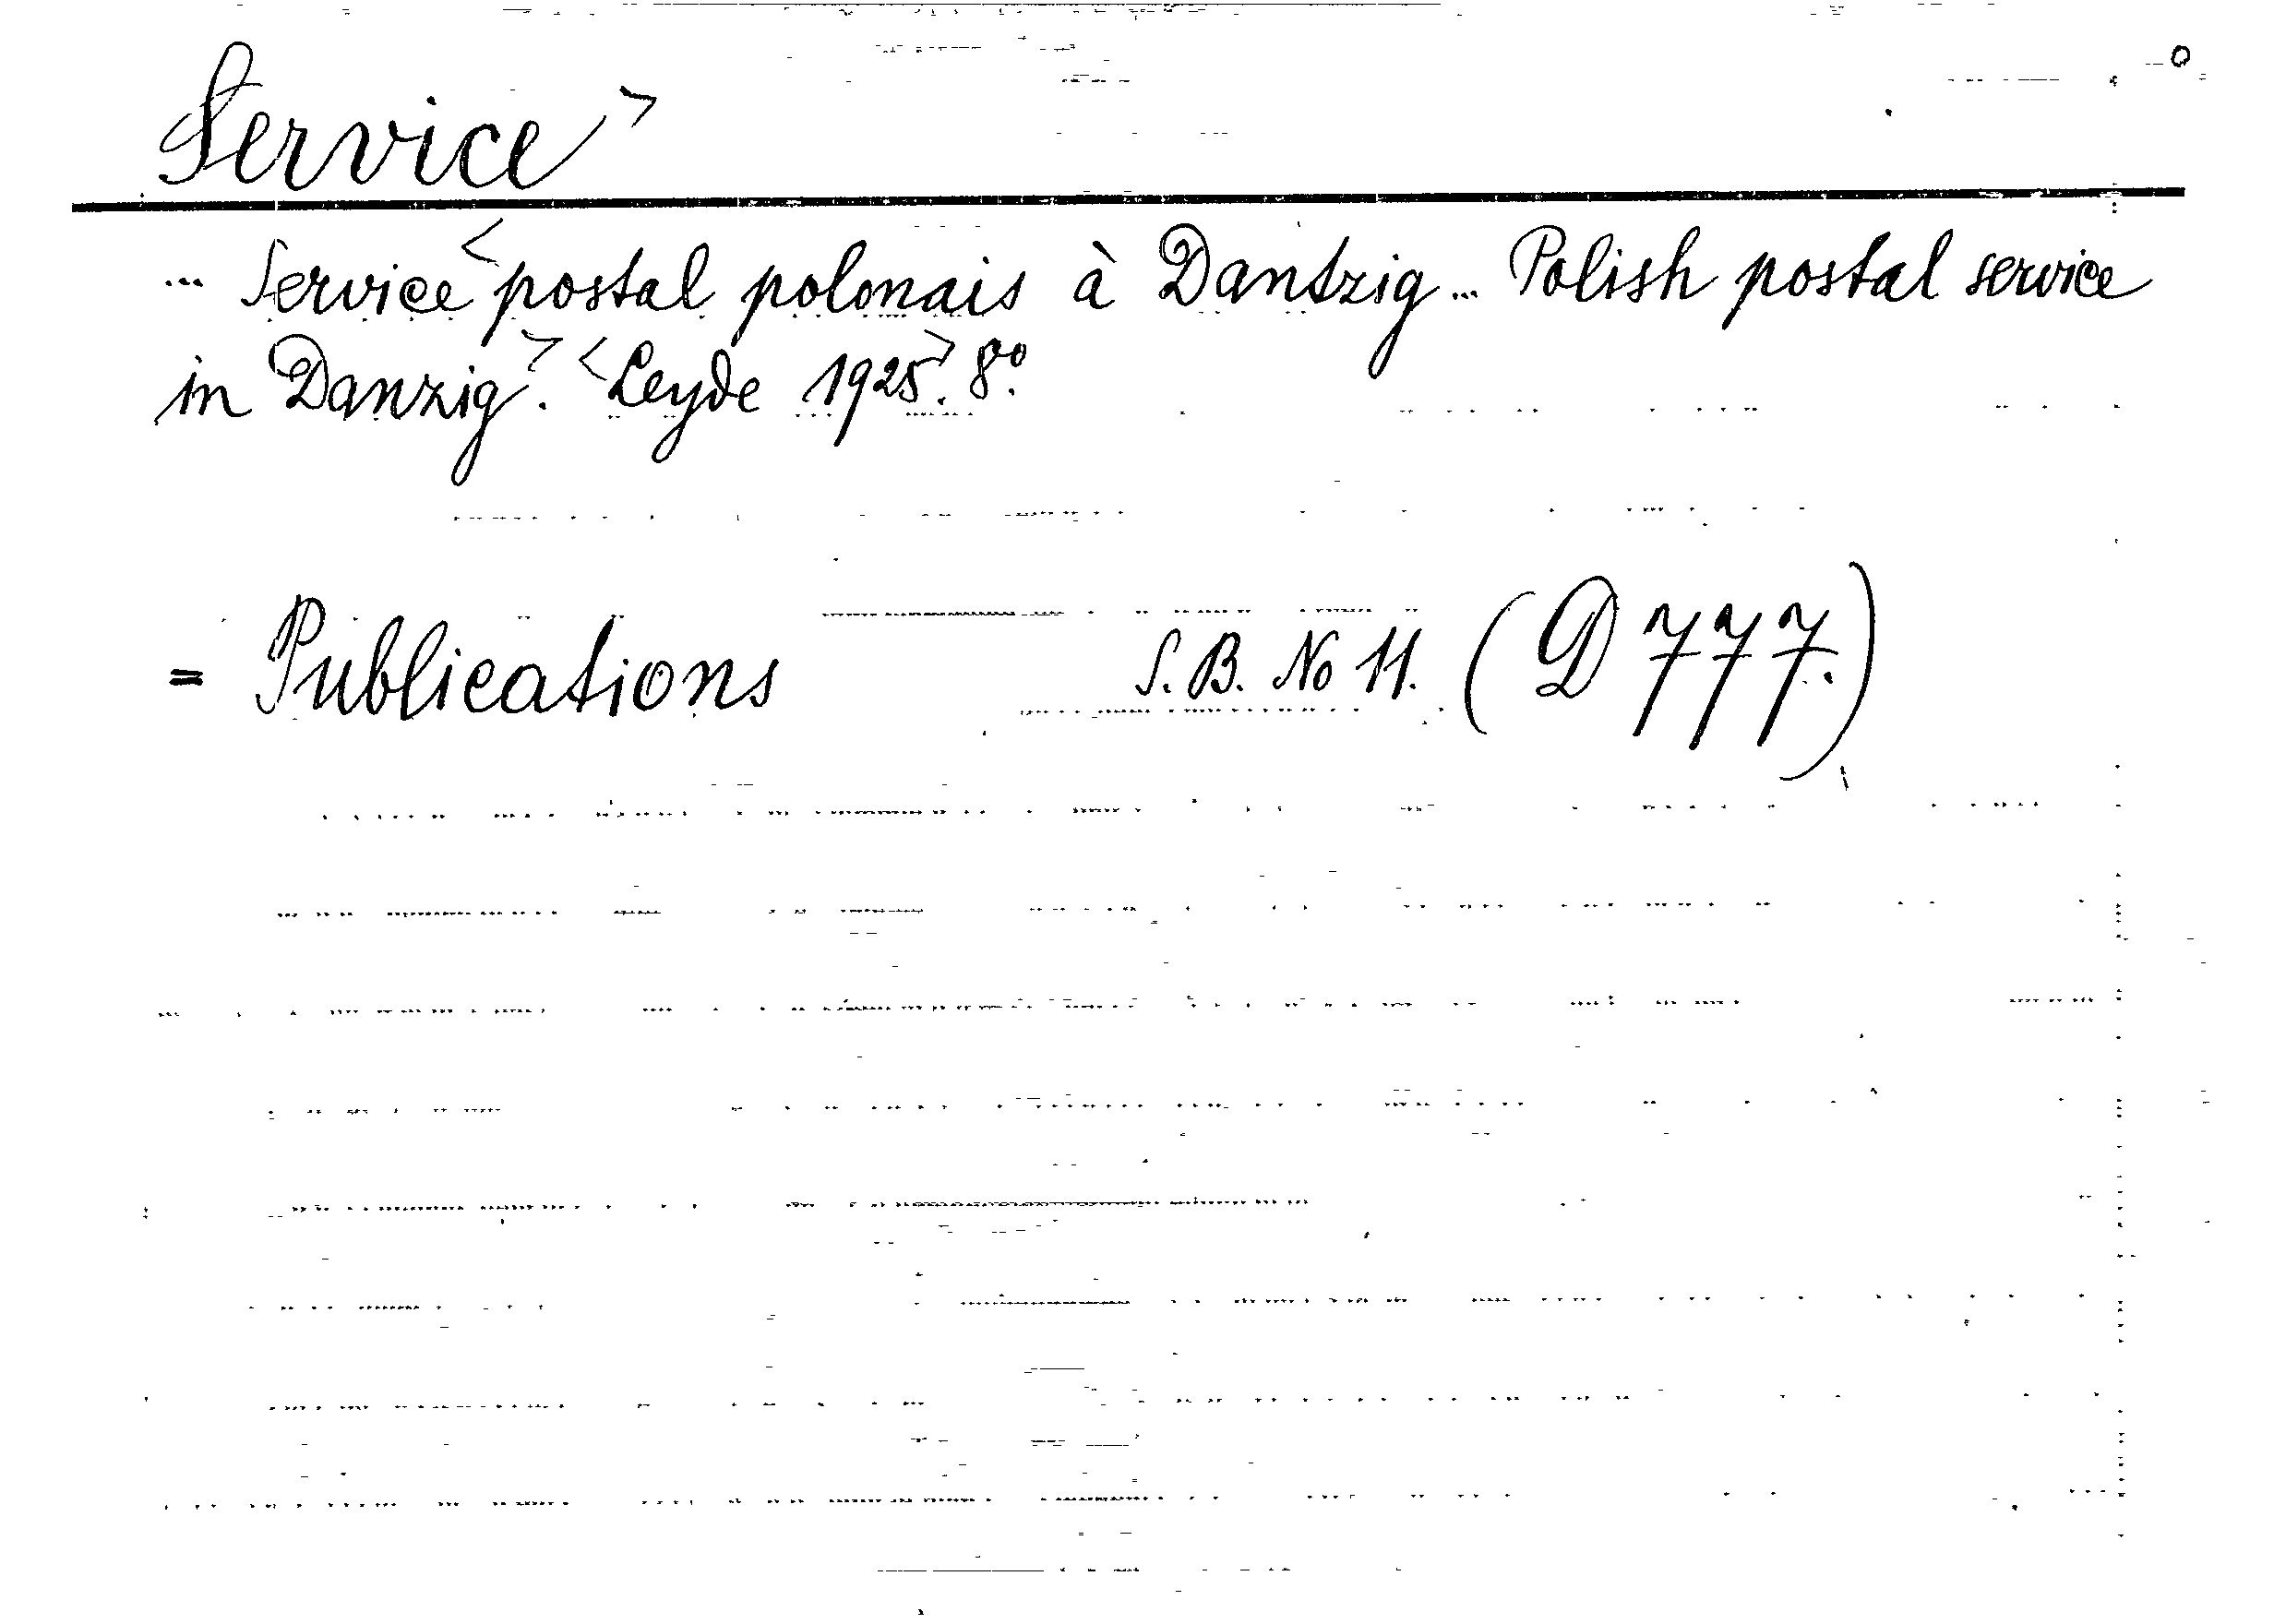 Service >
... Service < postal polonais à Dantzig... Polish postal service
in Danzig >. < Leyde 1925 >. 8º.
= Publications S. B. No 11. (D 777.)